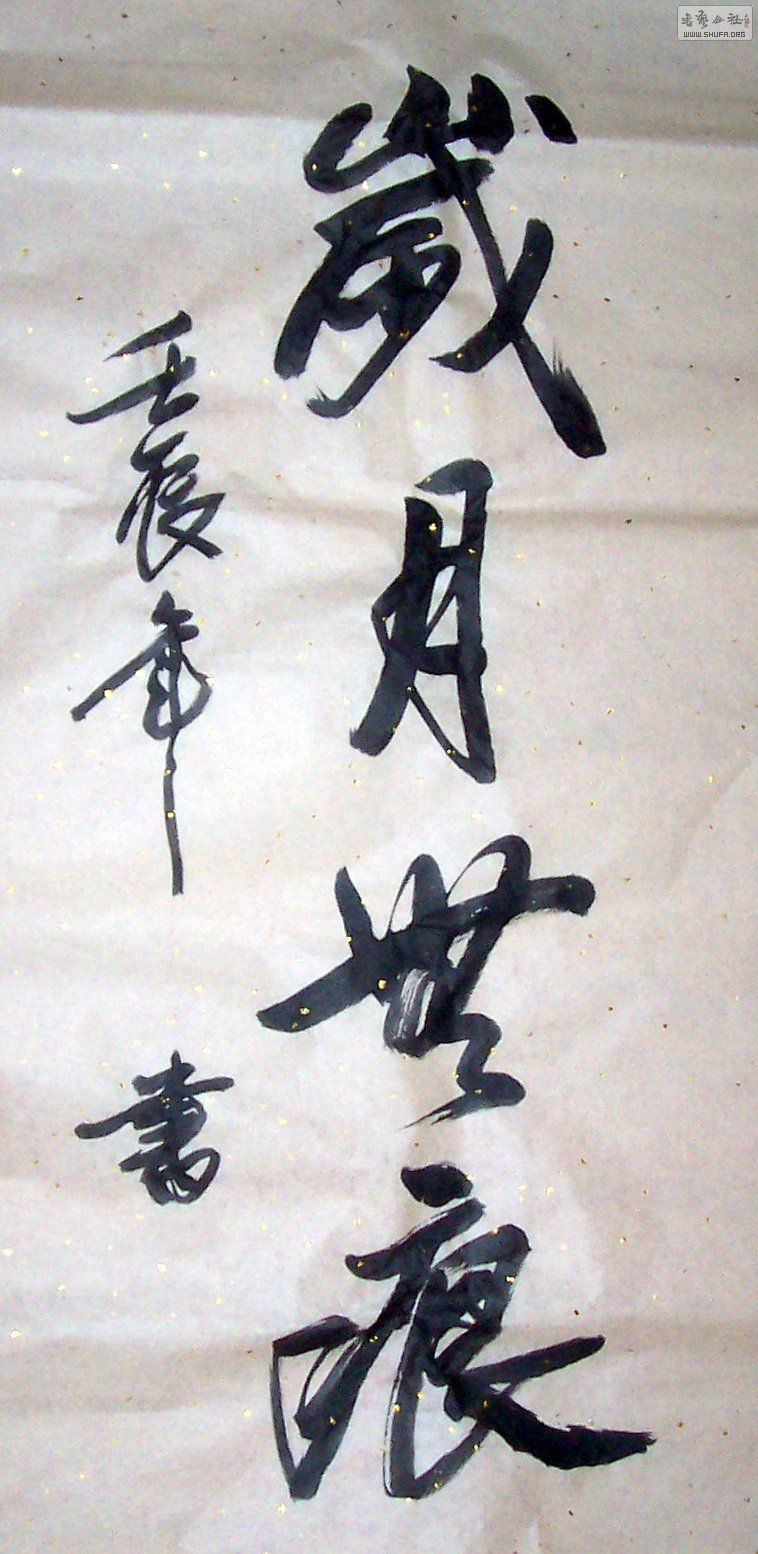 歲月無痕
壬辰年 書
書藝公社
WWW.SHUFA.ORG